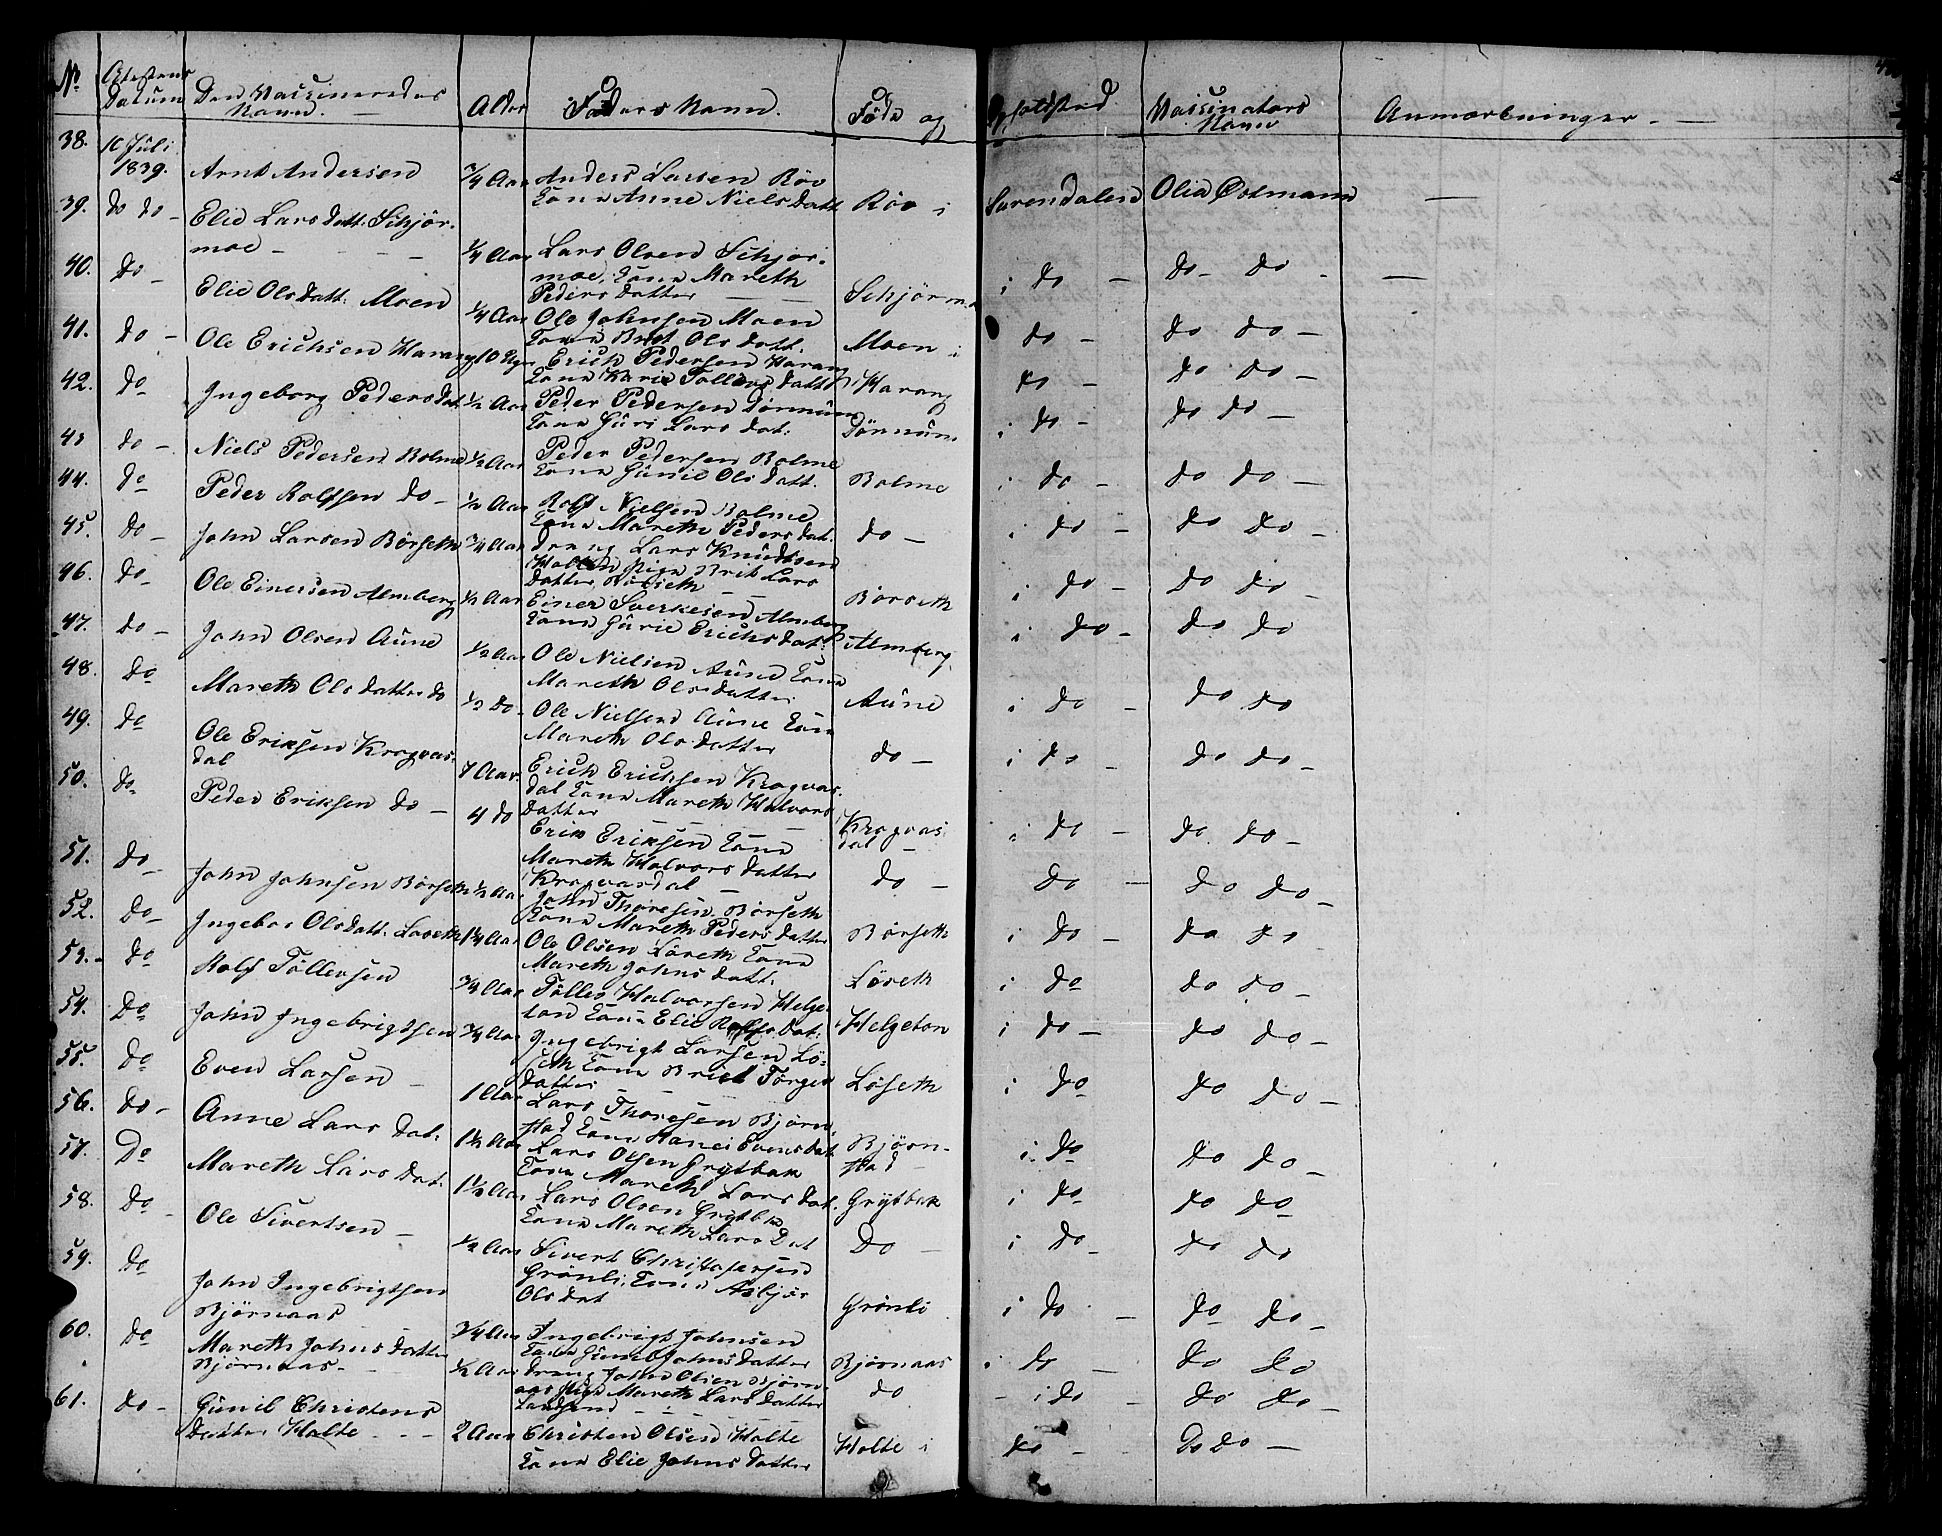 No. Attestens Datum Den Vassineredes Navn. — Alder Faders Navn. Føde og Opholdsted Vassinators Navn Anmærkninger. —
38. 10 Juli 1839. Arnt Andersen 3/4 Aar Anders Larsen Røv
Kone Anne Niels Datt Røv i Surendalen Olia Østmann —
39. do do — Elie Larsdatt. Schjør-
moe — 1/4 Aar Lars Olsen Schjør-
moe, Kone Mareth
Peders datter — Schjørmoe i do — do — do — —
40. do — Elie Olsdatt. Moen 1/4 Aar Ole Johnsen Moen
Kone Brit Ols datt. Moen i do — do do —
41. do — Ole Erichsen Harang 10 Uger Erich Pedersen Harang
Kone Karie Tollers datt Harang do — do do —
42. do Ingeborg Pedersdat 1/2 Aar Peder Pedersen Dønnum
Kone Guri Lars dat. Dønnum i do — do do —
43 do — Niels Pedersen Bolme 1/2 Aar Peder Pedersen Bolme
Kone Gunil Ols datt. Bolme i do — do do —
44. do Peder Rolfsen do — 1/2 Aar Rolf Nielsen Bolme
Kone Mareth Peders dat. do — i do — do do —
45. do — John Larsen Børseth 3/4 Aar Drang Lars Knudtsen
Holten Pige Brit Lars
datter Børseth — Børseth i do — do do —
46. do — Ole Einersen Almberg 1/2 Aar Einer Sverkesen Almberg
Kone Gurie Erichsdat. Almberg. i do — do do
47. do — John Olsen Aune 1/2 Aar Ole Nielsen Aune Kone
Mareth Olsdatter Aune i do — do do
48. do Mareth Olsdatter do 1/2 do. Ole Nielsen Aune Kone
Mareth Olsdatter do — i do — do do —
49. do Ole Eriksen Krogvas-
dal 7 Aar Erich Erichsen Krogvas-
dal Kone Mareth Halvors
datter — Krogvas-
dal — i do — do do —
50. do. Peder Eriksen do — 4 do Erik Eriksen Kone
Mareth Halvors datter
Krogvasdal — do — do — do do —
51. do — John Johnsen Børseth 1/2 Aar John Thoresen Børseth
Kone Mareth Peders datter Børseth i do — do do
52. do — Ingebor Olsdatt. Løseth 1 1/4 Aar Ole Olsen Løseth Kone
Mareth Johns datt. Løseth i do do do —
53. — do Rolf Tøllersen 3/4 Aar Tølles Halvorsen Helge-
ton Kone Elie Rolfs dat. Helgeton i do — do do —
54. Do John Ingebrigtsen 3/4 Aar Ingebrigt Larsen Lø-
seth Kone Brit Törges
datter — Løseth i do do do —
55. do Even Larsen — 1 Aar Lars Thoresen Bjørn-
stad Kone Hanei Evensdat Bjørn-
stad — i. do do do —
56. do — Anne Lars dat. 1 1/2 Aar Lars Olsen Grytbak
Kone Mareth Lars dat. Grytbak i do do do
57. Do Mareth Lars dat. 1 1/2 Aar Lars Olsen Grytbak
Kone Mareth Lars Dat Do — i do — do do
58. do — Ole Sivertsen — 1/2 Aar Sivert Christofersen
Grønli, Kone Asbjør
Olsdat Grønli i do — do do —
59. do John Ingebrigtsen
Bjørnaas 3/4 Aar Ingebrigt Johnsen
Kone Gunil Johns datter Bjørnaas i do — do do
60. do Mareth Johns datter
Bjørnaas — 1/2 Aar Drang John Olsen Bjørn-
aas Pige Mareth Lars datter
do — i do — do do —
61. do — Gunil Christens
datter Holte — 2 Aar Christen Olsen Holte
Kone Elie Johns datter Holte i do — do do —